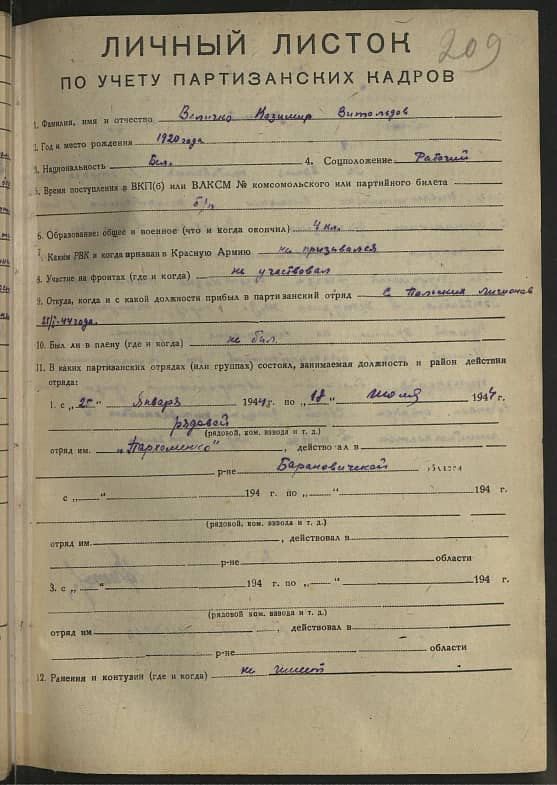 209
ЛИЧНЫЙ ЛИСТОК
ПО УЧЕТУ ПАРТИЗАНСКИХ КАДРОВ
1. Фамилия, имя и отчество Величко Казимир Витольдов
2. Год и место рождения 1920 года
3. Национальность Бел. 4. Соцположение Рабочий
5. Время поступления в ВКП(б) или ВЛКСМ № комсомольского или партийного билета
б/п
6. Образование: общее и военное (что и когда окончил) 4 кл.
7. Каким РВК и когда призван в Красную Армию не призывался
8. Участие на фронтах (где и когда) не участвовал
9. Откуда, когда и с какой должности прибыл в партизанский отряд с Польских легионов
25/I-44 года.
10. Был ли в плену (где и когда) не был.
11. В каких партизанских отрядах (или группах) состоял, занимаемая должность и район действия
отряда:
1. с „25" Января 1944 г. по „18" июля 1944 г.
рядовой
(рядовой, ком. взвода и т. д.)
отряд им. „Пархоменко", действовал в
р-не Барановичской области
с „ " 194 г. по „ " 194 г.
(рядовой, ком. взвода и т. д.)
отряд им. , действовал в
р-не области
3. с „ " 194 г. по „ " 194 г.
(рядовой, ком. взвода и т. д.)
отряд им , действовал в
р-не области
12. Ранения и контузии (где и когда) не имеет